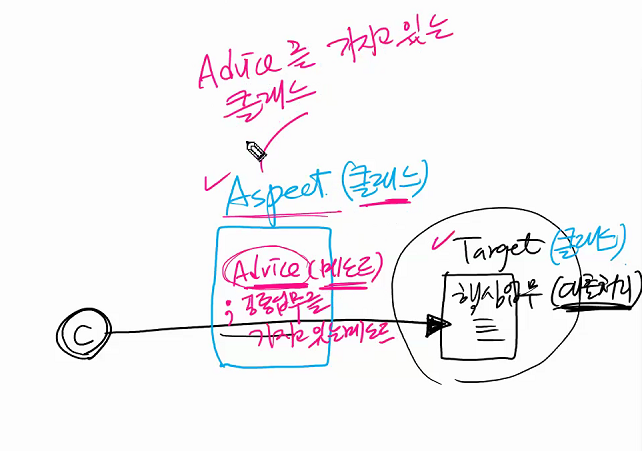 Advice를 가지고 있는
클래스
Aspect (클래스)
Advice (메도드)
; 공통업무를
가지고 있는 메도드
Target (클래스)
핵심업무 (대출처리)
C